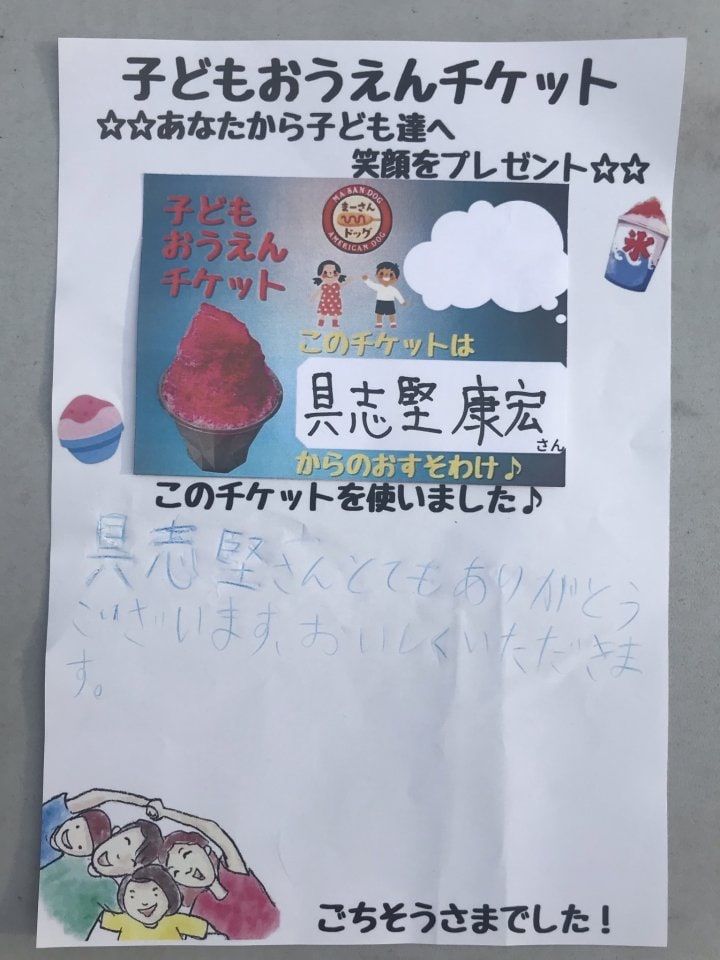 子どもおうえんチケット
☆☆あなたから子ども達へ
笑顔をプレゼント☆☆
子ども
おうえん
チケット
MA SAN DOG
まーさん
ドッグ
AMERICAN DOG
氷
このチケットは
具志堅 康宏
さん
からのおすそわけ♪
このチケットを使いました♪
具志堅さんとてもありがとう
ございます、おいしくいただきま
す。
ごちそうさまでした！